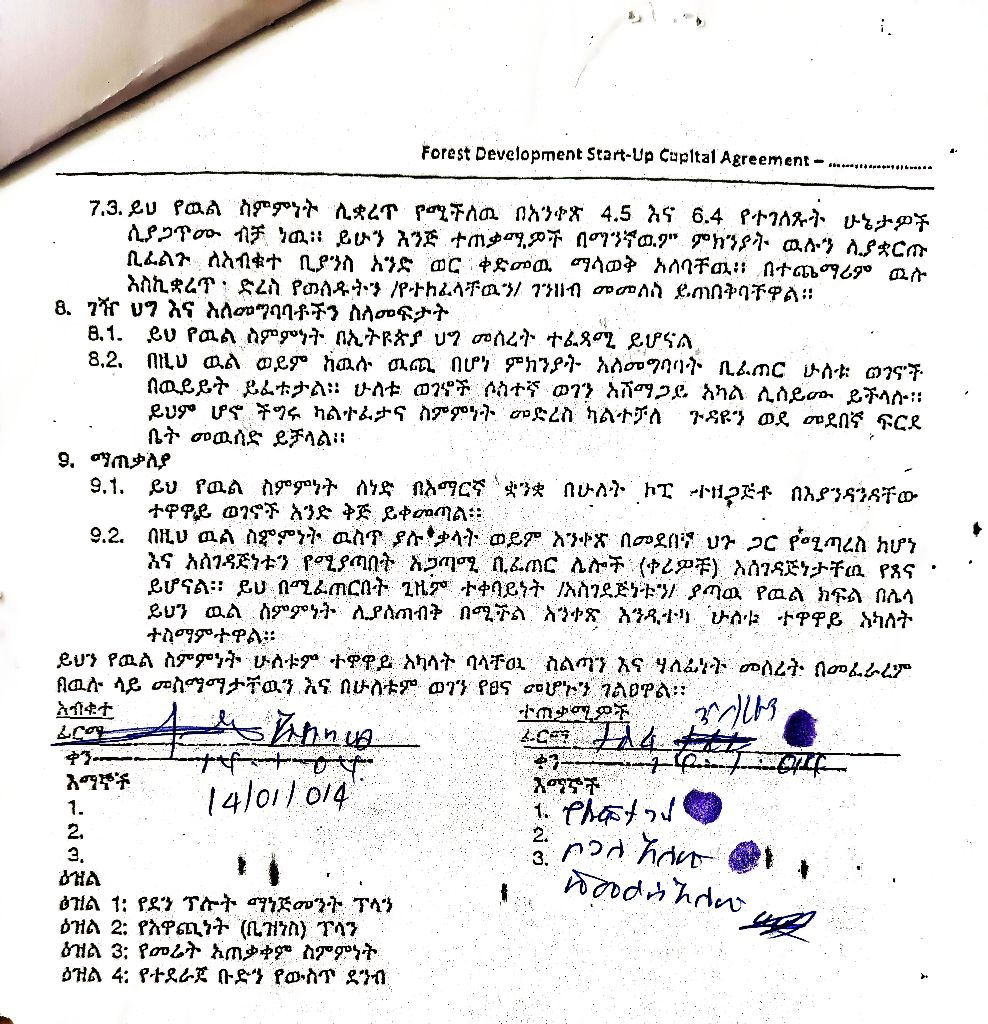 Forest Development Start-Up Capital Agreement – ........................
7.3. ይህ የዉል ስምምነት ሊቋረጥ የሚችለዉ በአንቀጽ 4.5 እና 6.4 የተገለጹት ሁኔታዎች
ሲያጋጥሙ ብቻ ነዉ። ይሁን እንጅ ተጠቃሚዎች በማንኛዉም ምክንያት ዉሉን ሊያቋርጡ
ቢፈልጉ ለአብቁተ ቢያንስ አንድ ወር ቀድመዉ ማሳወቅ አለባቸዉ። በተጨማሪም ዉሉ
እስኪቋረጥ ድረስ የወሰዱትን /የተከፈላቸዉን/ ገንዘብ መመለስ ይጠበቅባቸዋል።
8. ገዥ ህግ እና አለመግባባቶችን ስለመፍታት
8.1. ይህ የዉል ስምምነት በኢትዩጵያ ህግ መሰረት ተፈጻሚ ይሆናል
8.2. በዚህ ዉል ወይም ከዉሉ ዉጪ በሆነ ምክንያት አለመግባባት ቢፈጠር ሁለቱ ወገኖች
በዉይይት ይፈቱታል። ሁለቱ ወገኖች ሶስተኛ ወገን አሸማጋይ አካል ሊሰይሙ ይችላሉ።
ይህም ሆኖ ችግሩ ካልተፈታና ስምምነት መድረስ ካልተቻለ ጉዳዩን ወደ መደበኛ ፍርደ
ቤት መዉሰድ ይቻላል።
9. ማጠቃለያ
9.1. ይህ የዉል ስምምነት ሰነድ በአማርኛ ቋንቋ በሁለት ኮፒ ተዘጋጅቶ በእያንዳንዳቸው
ተዋዋይ ወገኖች አንድ ቅጅ ይቀመጣል።
9.2. በዚህ ዉል ስምምነት ዉስጥ ያሉ ቃላት ወይም አንቀጽ በመደበኛ ህጉ ጋር የሚጣረስ ከሆነ
እና አስገዳጅነቱን የሚያጣበት አጋጣሚ ቢፈጠር ሌሎች (ቀሪዎቹ) አስገዳጅነታቸዉ የጸና
ይሆናል። ይህ በሚፈጠርበት ጊዜም ተቀባይነት /አስገደጅነቱን/ ያጣዉ የዉል ክፍል በሌላ
ይህን ዉል ስምምነት ሊያስጠብቅ በሚችል አንቀጽ እንዲተካ ሁለቱ ተዋዋይ አካለት
ተስማምተዋል።
ይህን የዉል ስምምነት ሁለቱም ተዋዋይ አካላት ባላቸዉ ስልጣን እና ሃላፊነት መሰረት በመፈራረም
በዉሉ ላይ መስማማታቸዉን እና በሁለቱም ወገን የፀና መሆኑን ገልፀዋል።
አብቁተ
ፊርማ
ቀን
14/01/014
እማኞች
1.
2.
3.
ተጠቃሚዎች
ፊርማ
ቀን
እማኞች
1.
2.
3.
ዕዝል
ዕዝል 1: የደን ፕሎት ማነጅመንት ፕላን
ዕዝል 2: የአዋጪነት (ቢዝነስ) ፕላን
ዕዝል 3: የመሬት አጠቃቀም ስምምነት
ዕዝል 4: የተደራጀ ቡድን የውስጥ ደንብ